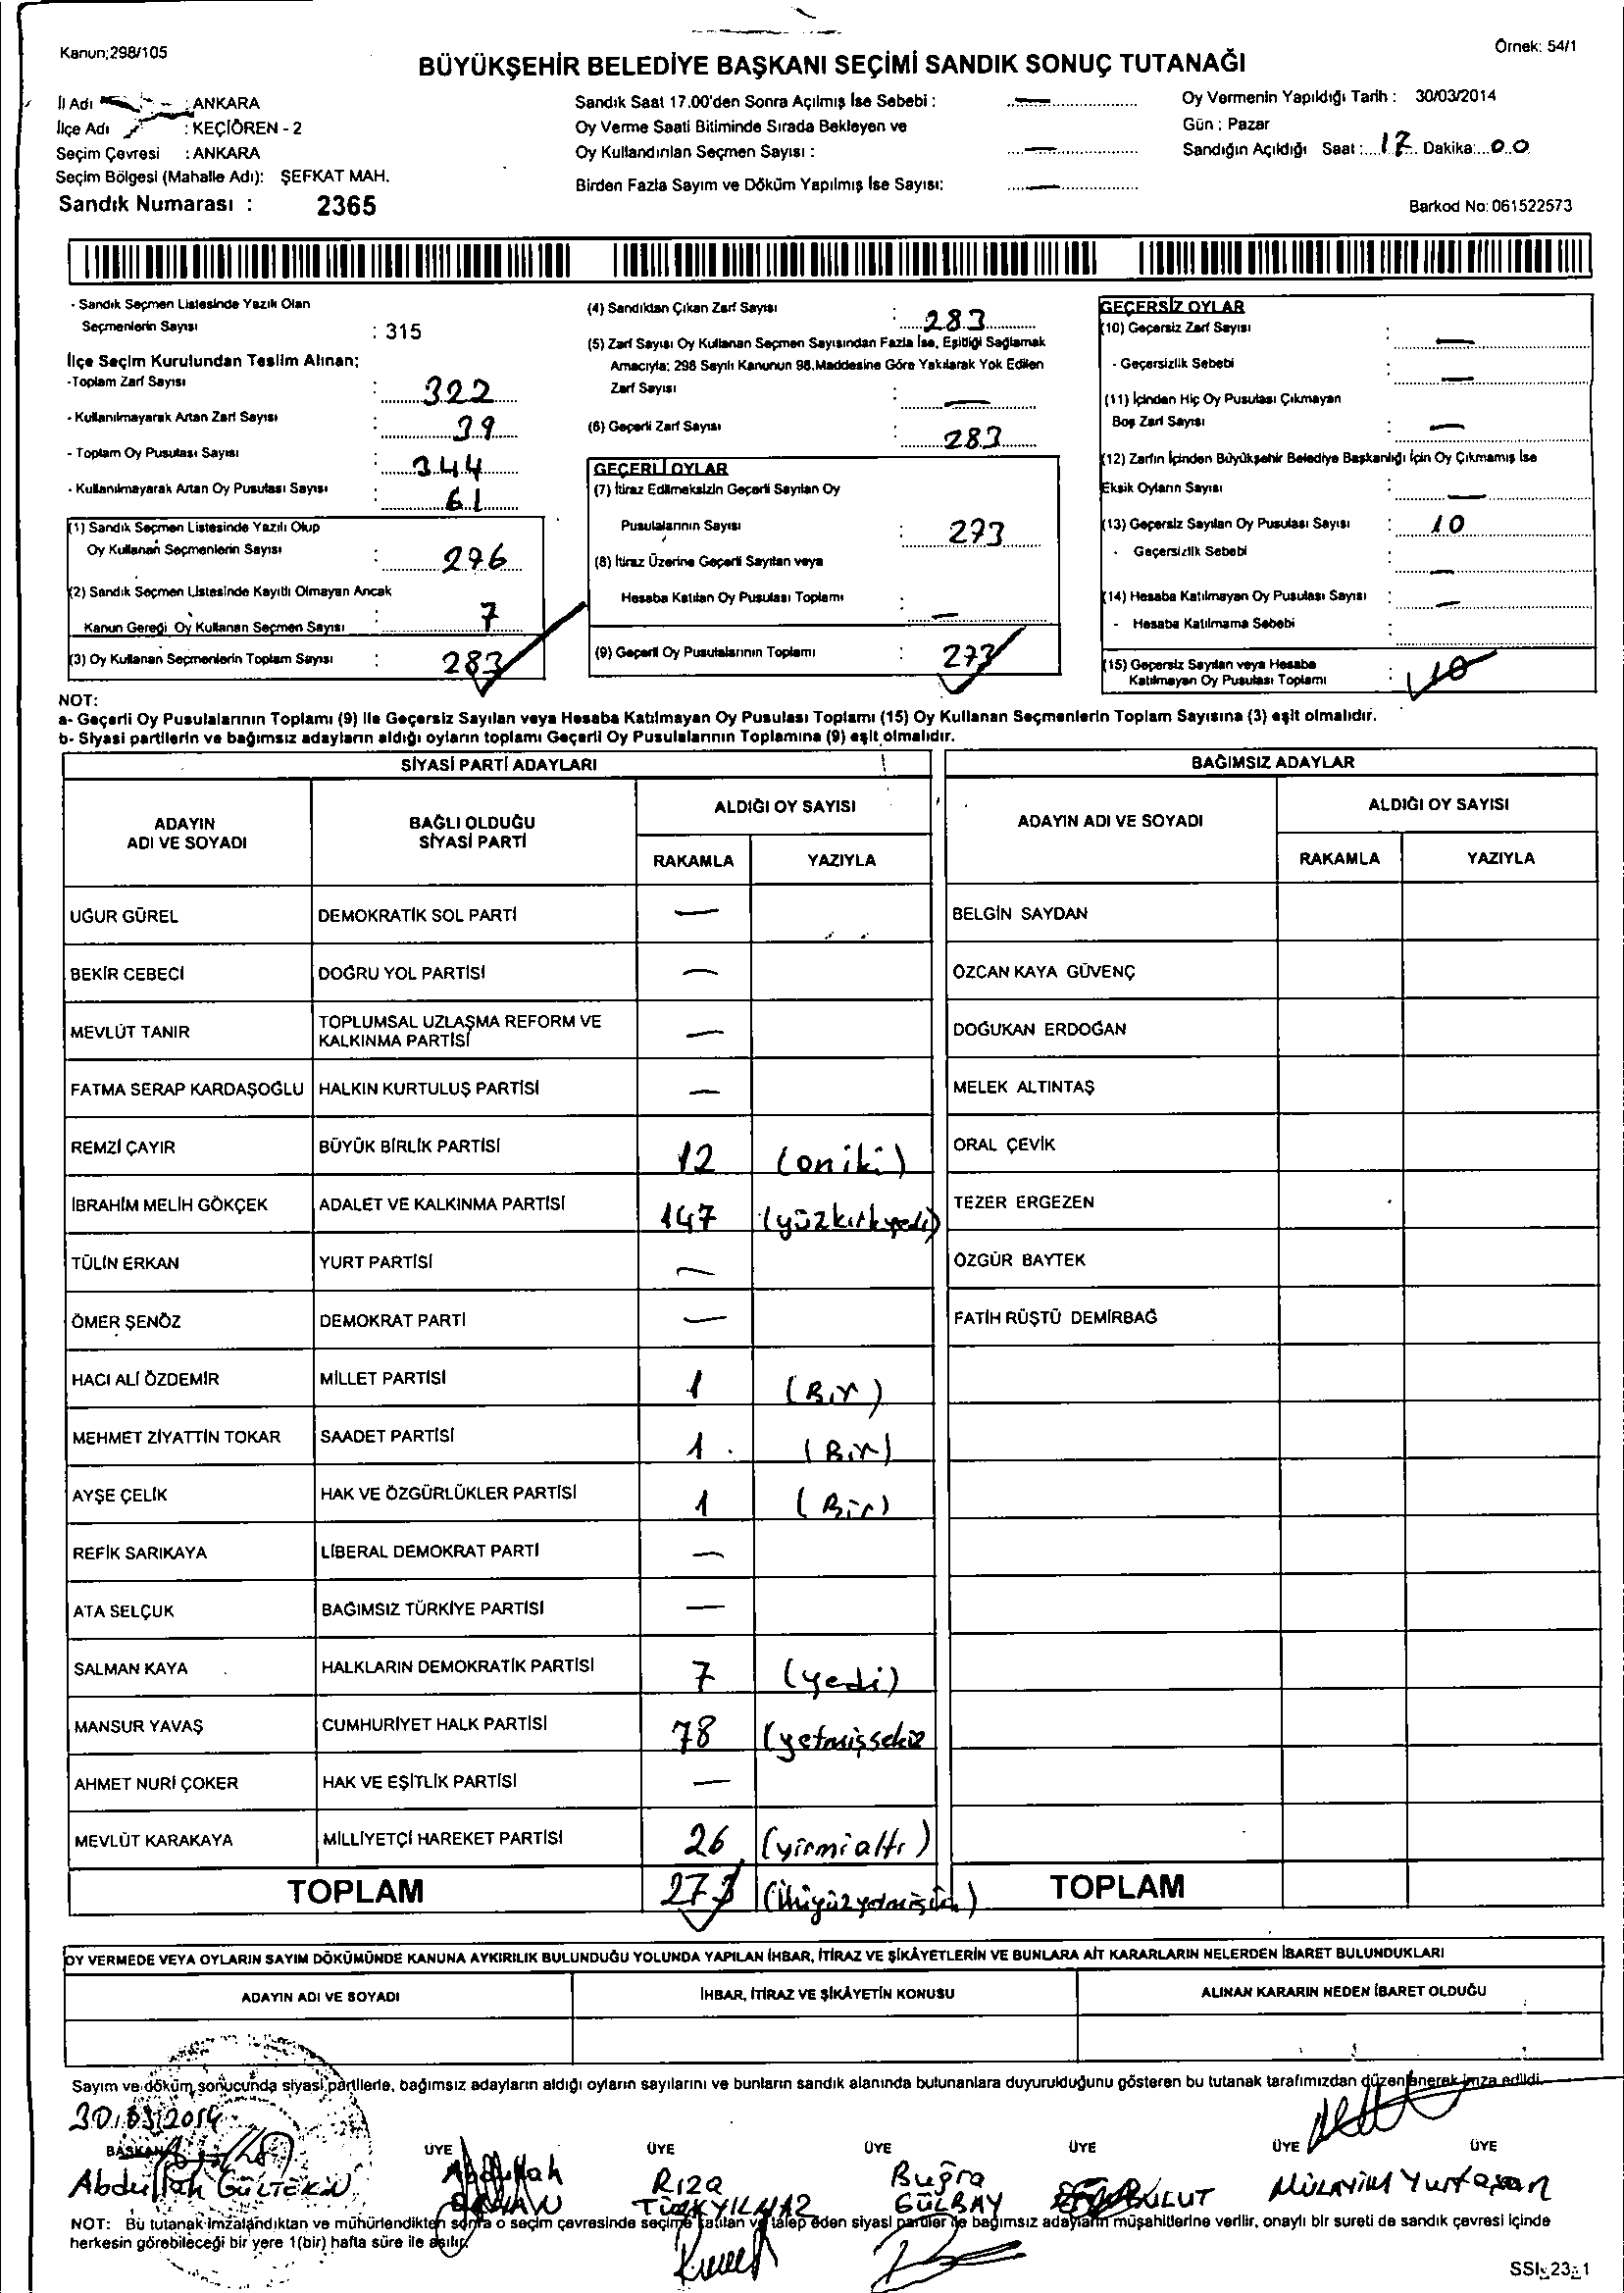 Kanun;298/105
Örnek: 54/1
BÜYÜKŞEHİR BELEDİYE BAŞKANI SEÇİMİ SANDIK SONUÇ TUTANAĞI
İl Adı : ANKARA
İlçe Adı : KEÇİÖREN - 2
Seçim Çevresi : ANKARA
Seçim Bölgesi (Mahalle Adı): ŞEFKAT MAH.
Sandık Numarası : 2365
Sandık Saat 17.00'den Sonra Açılmış İse Sebebi : —
Oy Verme Saati Bitiminde Sırada Bekleyen ve
Oy Kullandırılan Seçmen Sayısı : —
Birden Fazla Sayım ve Döküm Yapılmış İse Sayısı: —
Oy Vermenin Yapıldığı Tarih : 30/03/2014
Gün : Pazar
Sandığın Açıldığı Saat : 17 Dakika: 00
Barkod No: 061522573
- Sandık Seçmen Listesinde Yazılı Olan
Seçmenlerin Sayısı : 315
İlçe Seçim Kurulundan Teslim Alınan;
-Toplam Zarf Sayısı : 322
- Kullanılmayarak Artan Zarf Sayısı : 39
- Toplam Oy Pusulası Sayısı : 344
- Kullanılmayarak Artan Oy Pusulası Sayısı : 61
(1) Sandık Seçmen Listesinde Yazılı Olup
Oy Kullanan Seçmenlerin Sayısı : 276
(2) Sandık Seçmen Listesinde Kayıtlı Olmayan Ancak
Kanun Gereği Oy Kullanan Seçmen Sayısı : 7
(3) Oy Kullanan Seçmenlerin Toplam Sayısı : 283
(4) Sandıktan Çıkan Zarf Sayısı : 283
(5) Zarf Sayısı Oy Kullanan Seçmen Sayısından Fazla İse, Eşitliği Sağlamak
Amacıyla; 298 Sayılı Kanunun 98.Maddesine Göre Yakılarak Yok Edilen
Zarf Sayısı : —
(6) Geçerli Zarf Sayısı : 283
GEÇERLİ OYLAR
(7) İtiraz Edilmeksizin Geçerli Sayılan Oy
Pusulalarının Sayısı : 273
(8) İtiraz Üzerine Geçerli Sayılan veya
Hesaba Katılan Oy Pusulası Toplamı : —
(9) Geçerli Oy Pusulalarının Toplamı : 273
GEÇERSİZ OYLAR
(10) Geçersiz Zarf Sayısı : —
- Geçersizlik Sebebi : —
(11) İçinden Hiç Oy Pusulası Çıkmayan
Boş Zarf Sayısı : —
(12) Zarfın İçinden Büyükşehir Belediye Başkanlığı İçin Oy Çıkmamış İse
Eksik Oyların Sayısı : —
(13) Geçersiz Sayılan Oy Pusulası Sayısı : 10
- Geçersizlik Sebebi : —
(14) Hesaba Katılmayan Oy Pusulası Sayısı : —
- Hesaba Katılmama Sebebi :
(15) Geçersiz Sayılan veya Hesaba
Katılmayan Oy Pusulası Toplamı : 10
NOT:
a- Geçerli Oy Pusulalarının Toplamı (9) ile Geçersiz Sayılan veya Hesaba Katılmayan Oy Pusulası Toplamı (15) Oy Kullanan Seçmenlerin Toplam Sayısına (3) eşit olmalıdır.
b- Siyasi partilerin ve bağımsız adayların aldığı oyların toplamı Geçerli Oy Pusulalarının Toplamına (9) eşit olmalıdır.
SİYASİ PARTİ ADAYLARI
ADAYIN ADI VE SOYADI
BAĞLI OLDUĞU SİYASİ PARTİ
ALDIĞI OY SAYISI
RAKAMLA YAZIYLA
UĞUR GÜREL DEMOKRATİK SOL PARTİ —
BEKİR CEBECİ DOĞRU YOL PARTİSİ —
MEVLÜT TANIR TOPLUMSAL UZLAŞMA REFORM VE KALKINMA PARTİSİ —
FATMA SERAP KARDAŞOĞLU HALKIN KURTULUŞ PARTİSİ —
REMZİ ÇAYIR BÜYÜK BİRLİK PARTİSİ 12 (oniki)
İBRAHİM MELİH GÖKÇEK ADALET VE KALKINMA PARTİSİ 147 (yüzkırkyedi)
TÜLİN ERKAN YURT PARTİSİ —
ÖMER ŞENÖZ DEMOKRAT PARTİ —
HACI ALİ ÖZDEMİR MİLLET PARTİSİ 1 (Bir)
MEHMET ZİYATTİN TOKAR SAADET PARTİSİ 1 (Bir)
AYŞE ÇELİK HAK VE ÖZGÜRLÜKLER PARTİSİ 1 (Bir)
REFİK SARIKAYA LİBERAL DEMOKRAT PARTİ —
ATA SELÇUK BAĞIMSIZ TÜRKİYE PARTİSİ —
SALMAN KAYA HALKLARIN DEMOKRATİK PARTİSİ 7 (yedi)
MANSUR YAVAŞ CUMHURİYET HALK PARTİSİ 78 (yetmişsekiz
AHMET NURİ ÇOKER HAK VE EŞİTLİK PARTİSİ —
MEVLÜT KARAKAYA MİLLİYETÇİ HAREKET PARTİSİ 26 (yirmialtı)
TOPLAM 273 (ikiyüzyetmişüç)
BAĞIMSIZ ADAYLAR
ADAYIN ADI VE SOYADI
ALDIĞI OY SAYISI
RAKAMLA YAZIYLA
BELGİN SAYDAN
ÖZCAN KAYA GÜVENÇ
DOĞUKAN ERDOĞAN
MELEK ALTINTAŞ
ORAL ÇEVİK
TEZER ERGEZEN
ÖZGÜR BAYTEK
FATİH RÜŞTÜ DEMİRBAĞ
TOPLAM
OY VERMEDE VEYA OYLARIN SAYIM DÖKÜMÜNDE KANUNA AYKIRILIK BULUNDUĞU YOLUNDA YAPILAN İHBAR, İTİRAZ VE ŞİKÂYETLERİN VE BUNLARA AİT KARARLARIN NELERDEN İBARET BULUNDUKLARI
ADAYIN ADI VE SOYADI
İHBAR, İTİRAZ VE ŞİKÂYETİN KONUSU
ALINAN KARARIN NEDEN İBARET OLDUĞU
Sayım ve döküm sonucunda siyasi partilerle, bağımsız adayların aldığı oyların sayılarını ve bunların sandık alanında bulunanlara duyurulduğunu gösteren bu tutanak tarafımızdan düzenlenerek imza edildi.
30/03/2014
BAŞKAN ÜYE ÜYE ÜYE ÜYE ÜYE ÜYE
Abdullah GÜLTEKİN
Abdullah
Rıza
TÜRKYILMAZ
Buğra
GÜLBAY
BULUT
MÜLAYİM Yurtaşan
NOT: Bu tutanak imzalandıktan ve mühürlendikten sonra o seçim çevresinde seçime katılan ve talep eden siyasi partiler ile bağımsız adayların müşahitlerine verilir, onaylı bir sureti de sandık çevresi içinde
herkesin görebileceği bir yere 1(bir) hafta süre ile asılır.
SSI-23-1